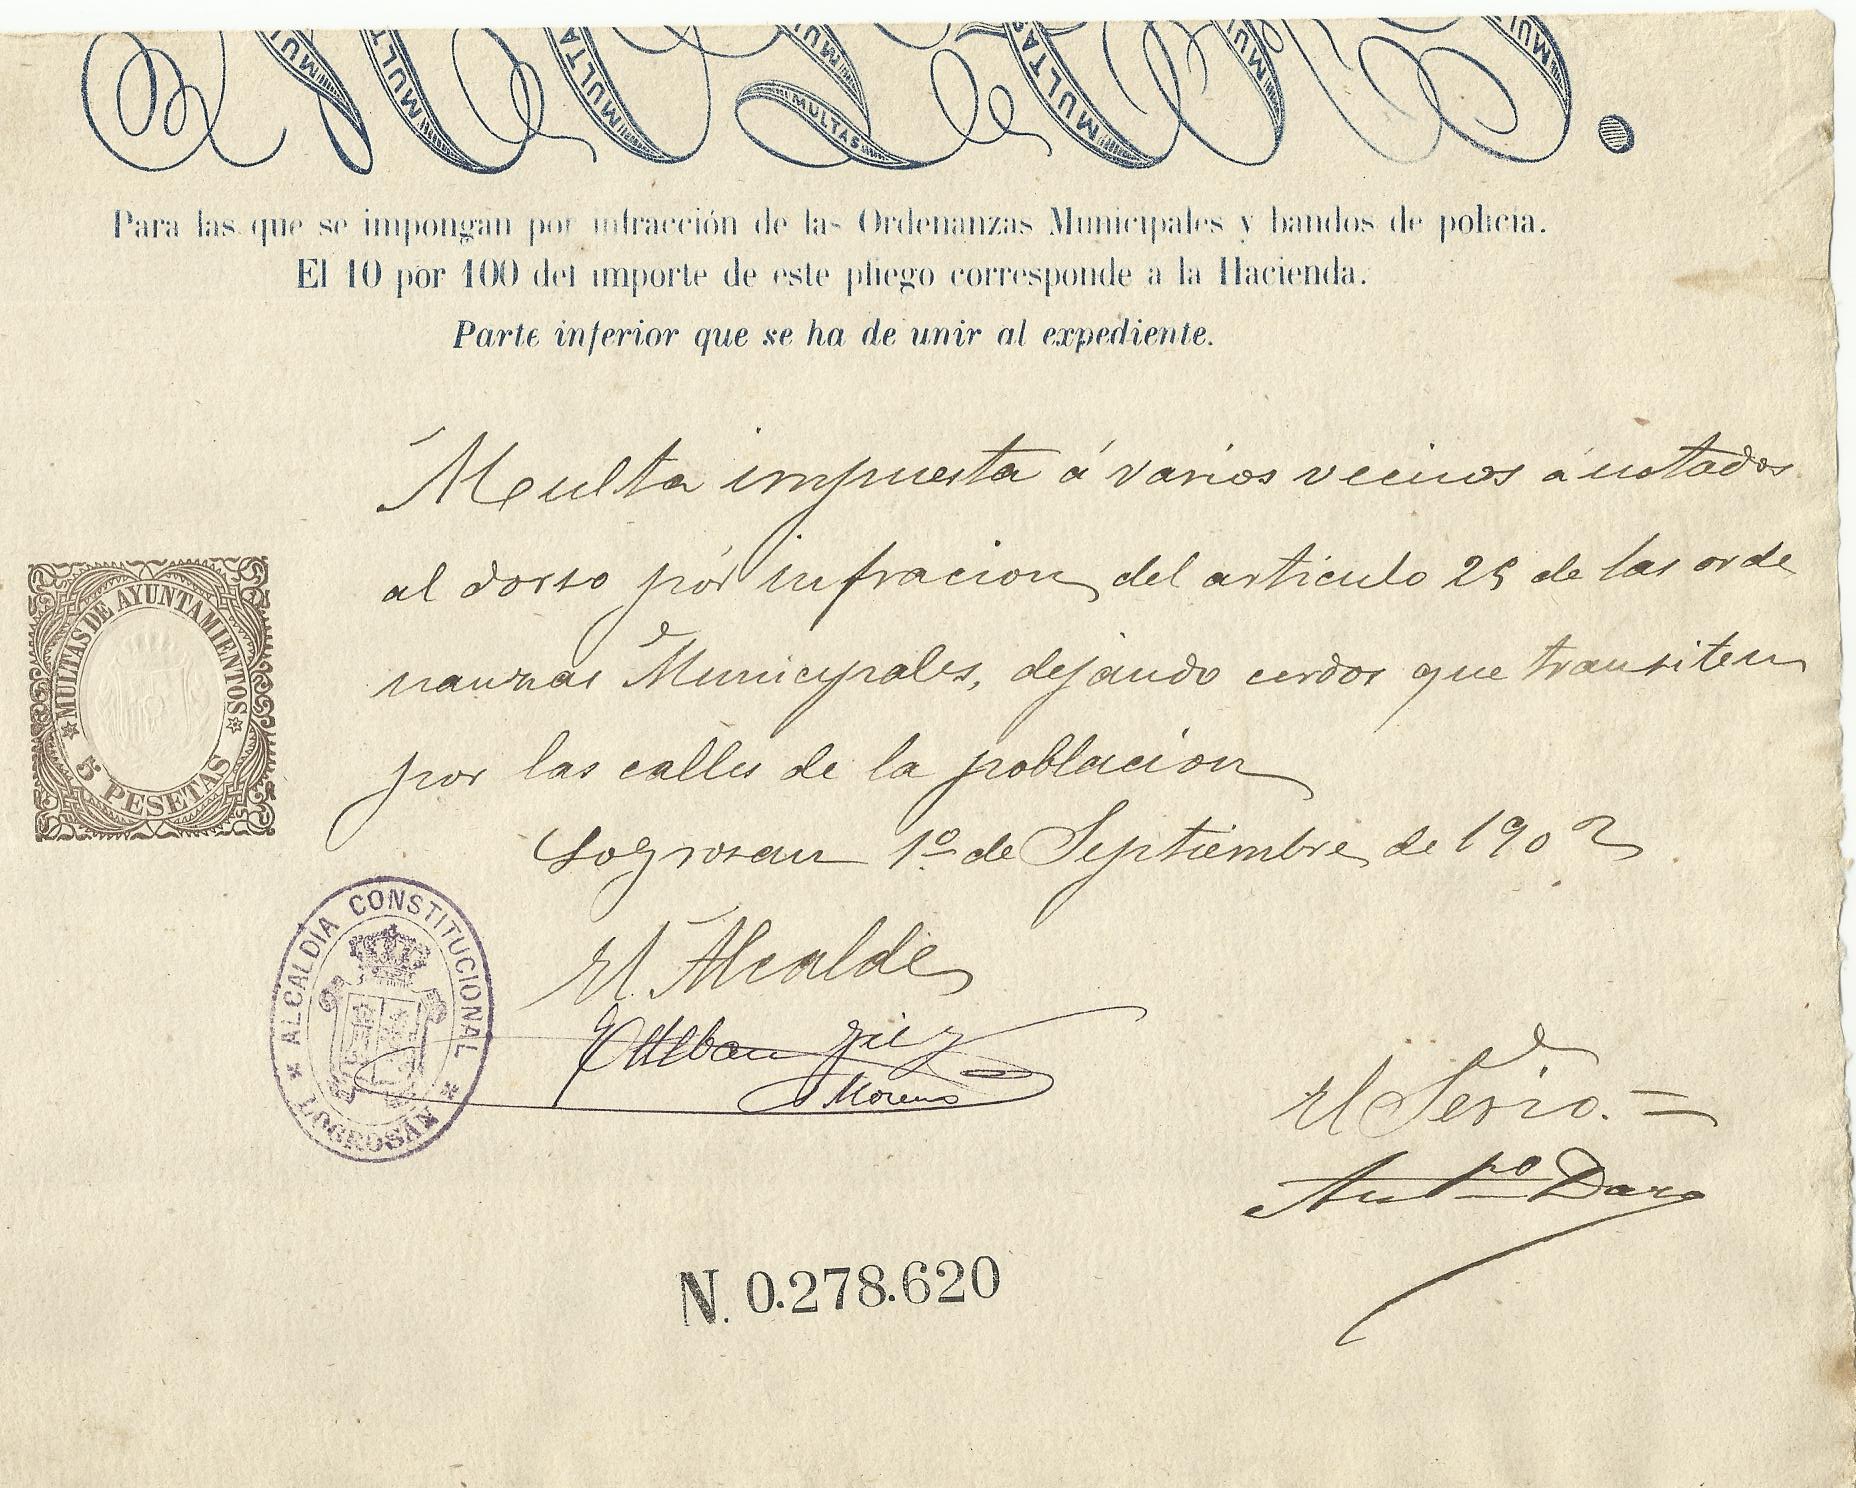 MULTAS MULTAS MULTAS MULTAS
Para las que se impongan por infracción de las Ordenanzas Municipales y bandos de policía.
El 10 por 100 del importe de este pliego corresponde a la Hacienda.
Parte inferior que se ha de unir al expediente.
Multa impuesta á varios vecinos ánotados
al dorso pór infracion del articulo 25 de las orde
nanzas Municipales, dejando cerdos que transiten
por las calles de la poblacion
Logrosan 1º de Septiembre de 1902
MULTAS DE AYUNTAMIENTOS
5 PESETAS
El Alcalde
Esteban
Moreno
ALCALDIA CONSTITUCIONAL
LOGROSÁN
El Serio.=
Antº
N. 0.278.620